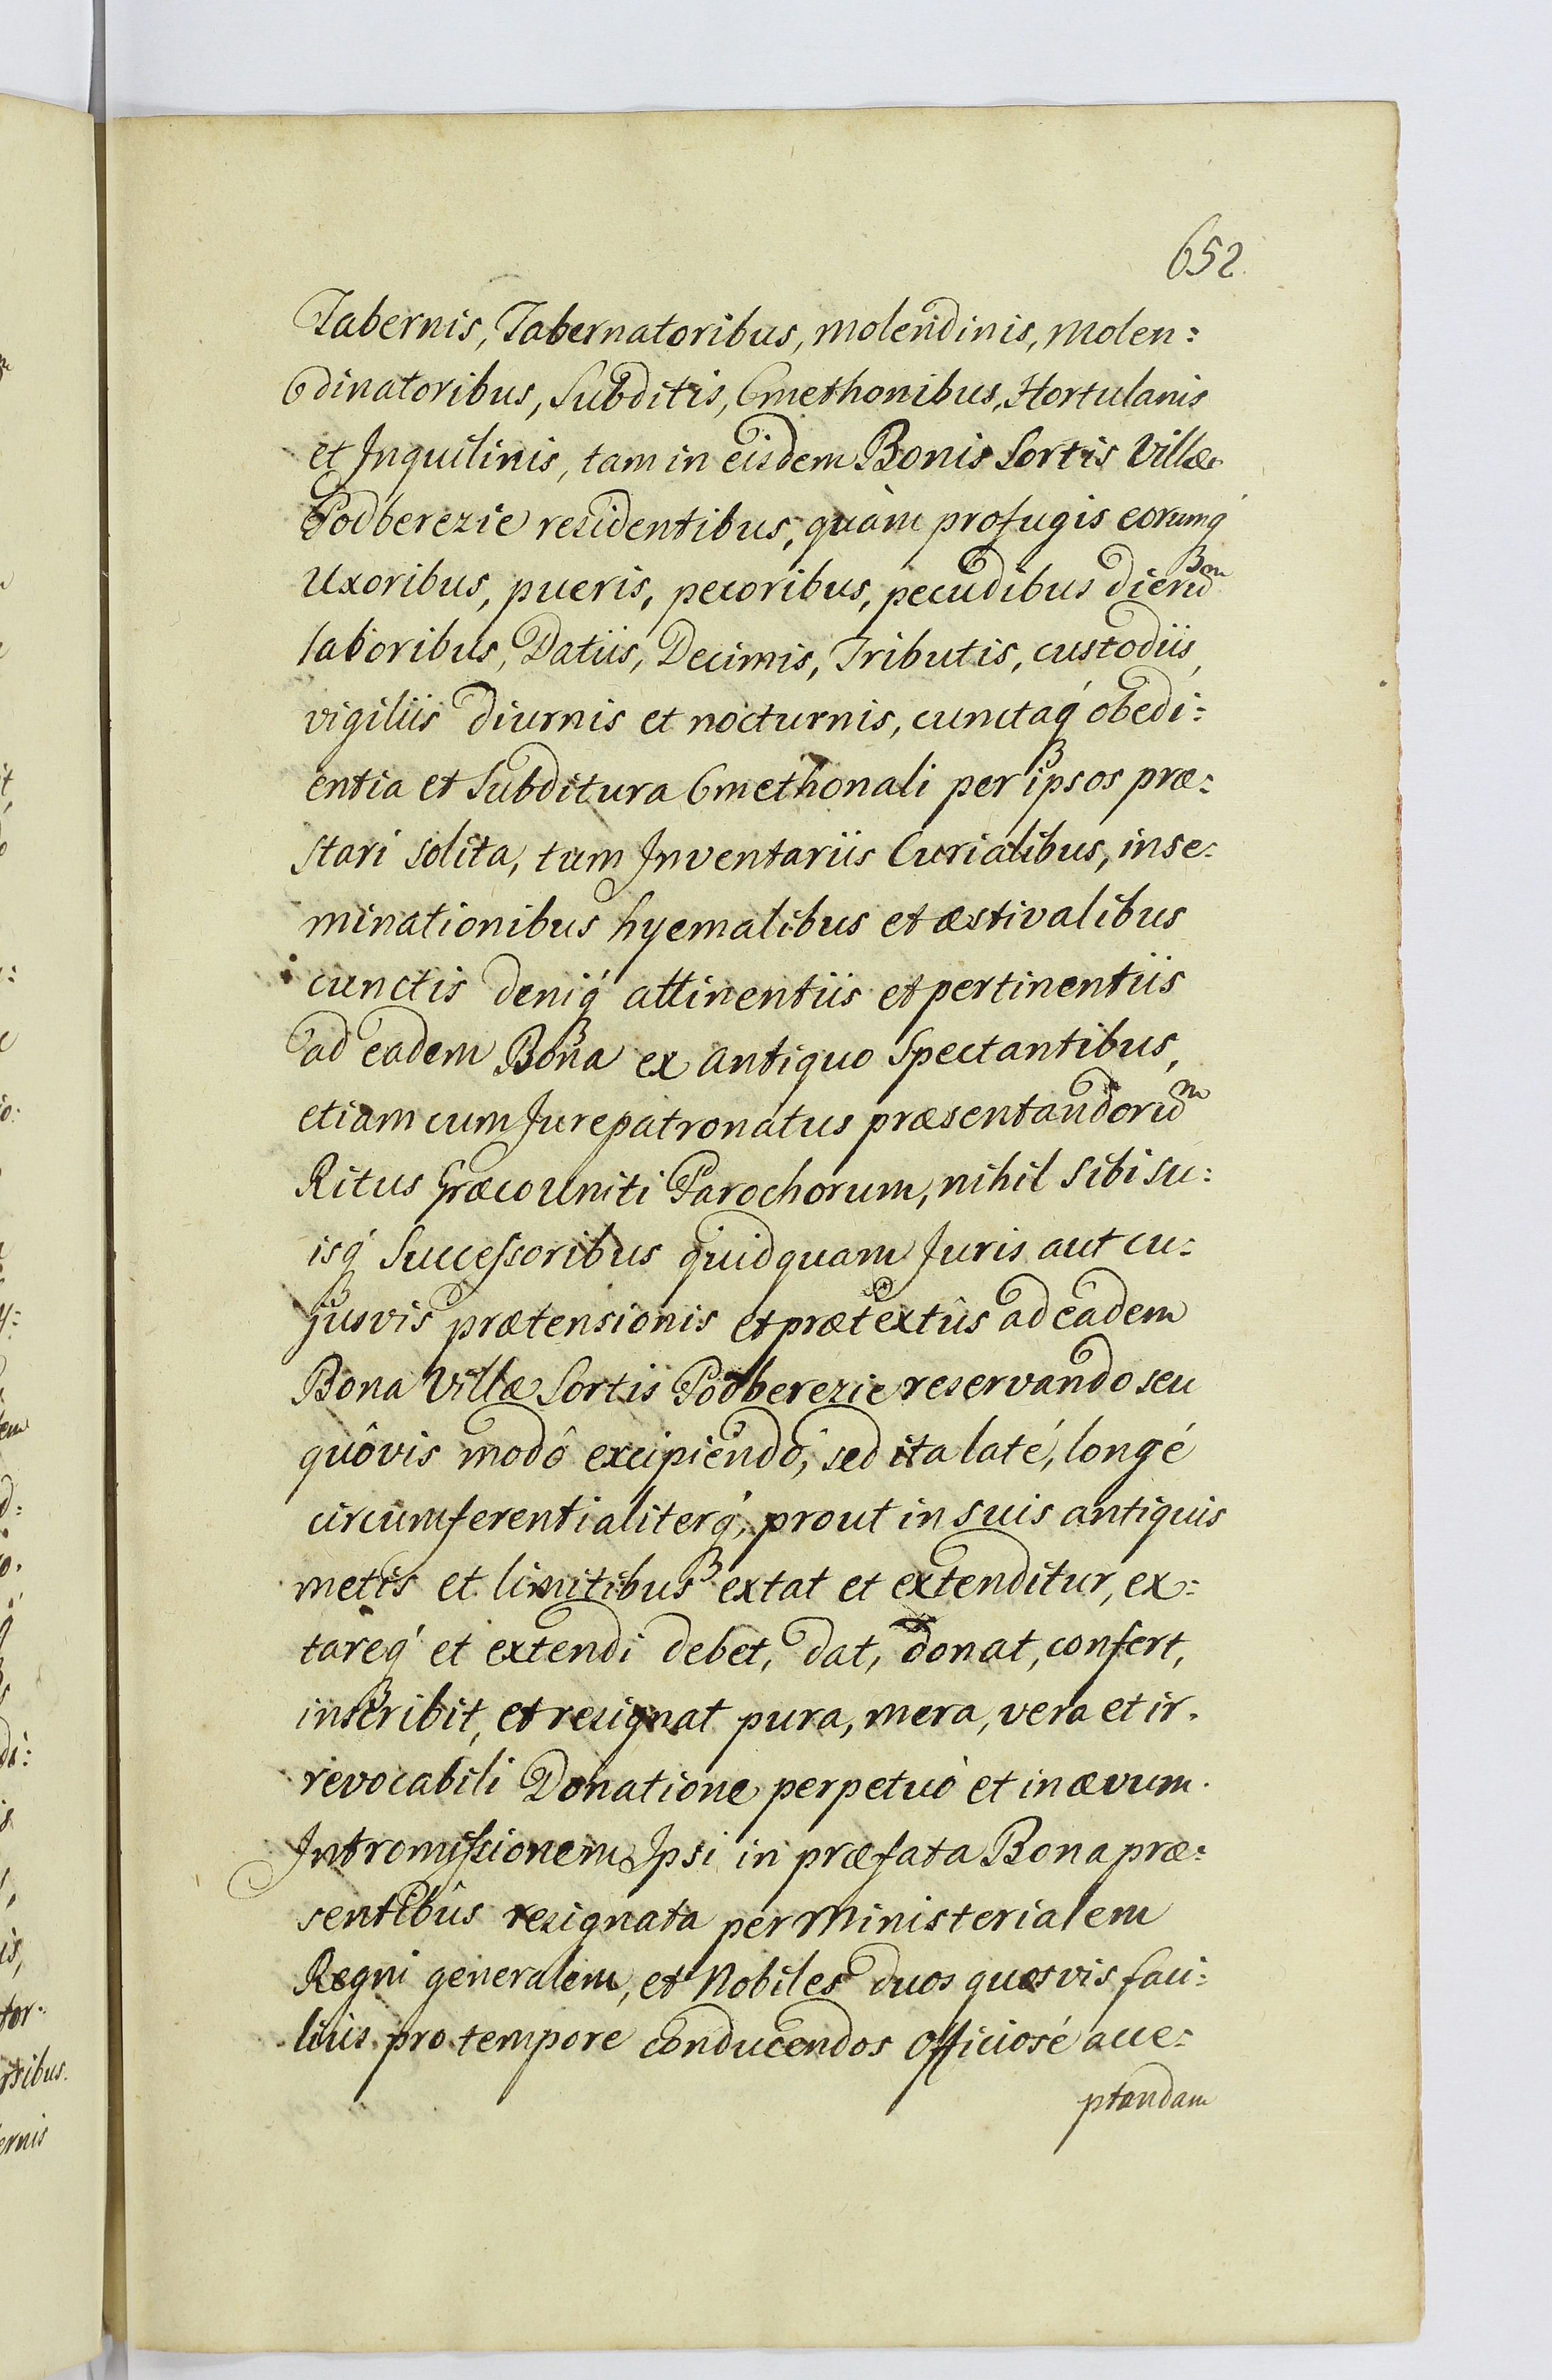 652.
Tabernis, Tabernatoribus, molendinis, molen:
dinatoribus, Subditis, Cmethonibus, Hortulanis
et Inquilinis, tam in eisdem Bonis Sortis Villæ
Podberezie residentibus, quàm profugis eorumq́
Uxoribus, pueris, pecoribus, pecudibus dierũ
laboribus, Datiis, Decimis, Tributis, custodiis,
vigiliis diurnis et nocturnis, cunctaq́ obedi:
entia et Subditura Cmethonali per ipsos præ:
stari solita, tum Inventariis Curialibus, inse:
minationibus hyemalibus et æstivalibus
cunctis deniq́ attinentiis et pertinentiis
ad eadem Bona ex antiquo Spectantibus,
etiam cum Jurepatronatus præsentandorũ
Ritus Græco Uniti Parochorum, nihil Sibi su:
isq́ Successoribus quidquam Juris aut cu:
jusvis prætensionis et prætextûs ad eadem
Bona Villæ Sortis Podberezie reservando seu
quôvis modô excipiendô, sed ita laté, longé
circumferentialiterq́, prout in suis antiquis
metis et limitibus extat et extenditur, ex:
tareq́ et extendi debet, dat, donat, confert,
inscribit, et resignat pura, mera, vera et ir:
revocabili Donatione perpetuò et in ævum.
Intromissionem Ipsi in præfata Bona præ:
sentibûs resignata per Ministerialem
Regni generalem, et Nobiles duos quosvis faci:
lius pro tempore conducendos Officiosé acce:
ptandam